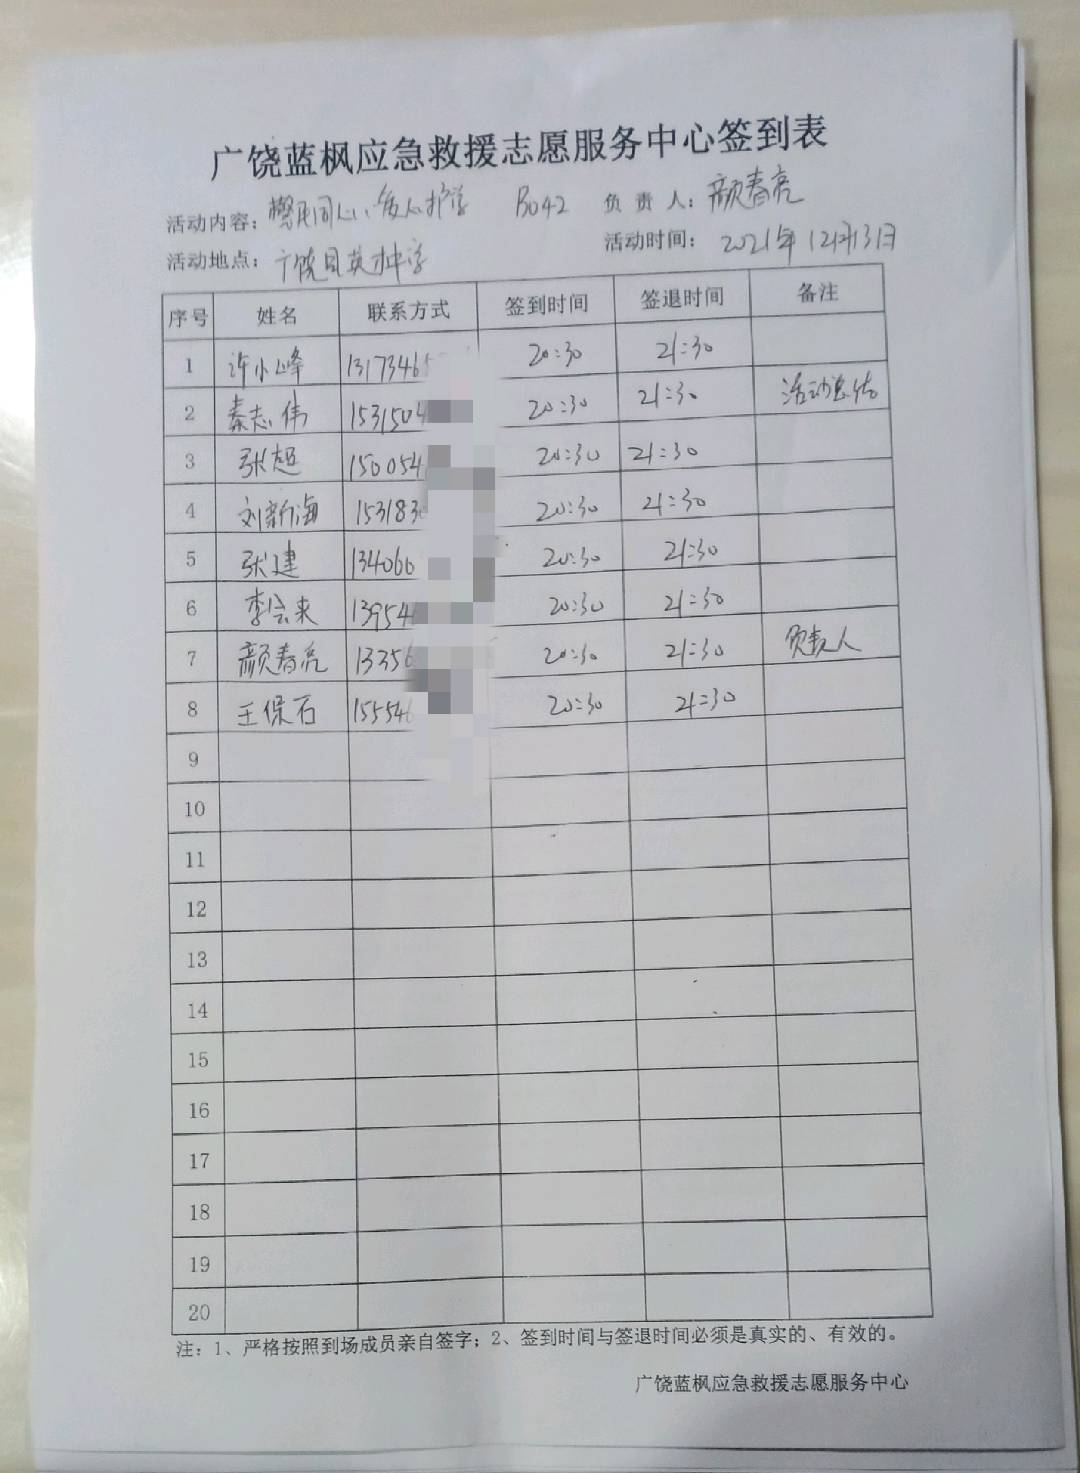 广饶蓝枫应急救援志愿服务中心签到表
活动内容：警民同心、爱心护学 B042 负责人：颜春亮
活动地点：广饶县英才中学 活动时间：2021年12月13日
序号 姓名 联系方式 签到时间 签退时间 备注
1 许小峰 1317346 20:30 21:30
2 秦志伟 153150 20:30 21:30 活动总结
3 张超 150054 20:30 21:30
4 刘新海 153183 20:30 21:30
5 张建 134060 20:30 21:30
6 李会来 13954 20:30 21:30
7 颜春亮 13356 20:30 21:30 负责人
8 王保石 15554 20:30 21:30
9
10
11
12
13
14
15
16
17
18
19
20
注：1、严格按照到场成员亲自签字；2、签到时间与签退时间必须是真实的、有效的。
广饶蓝枫应急救援志愿服务中心